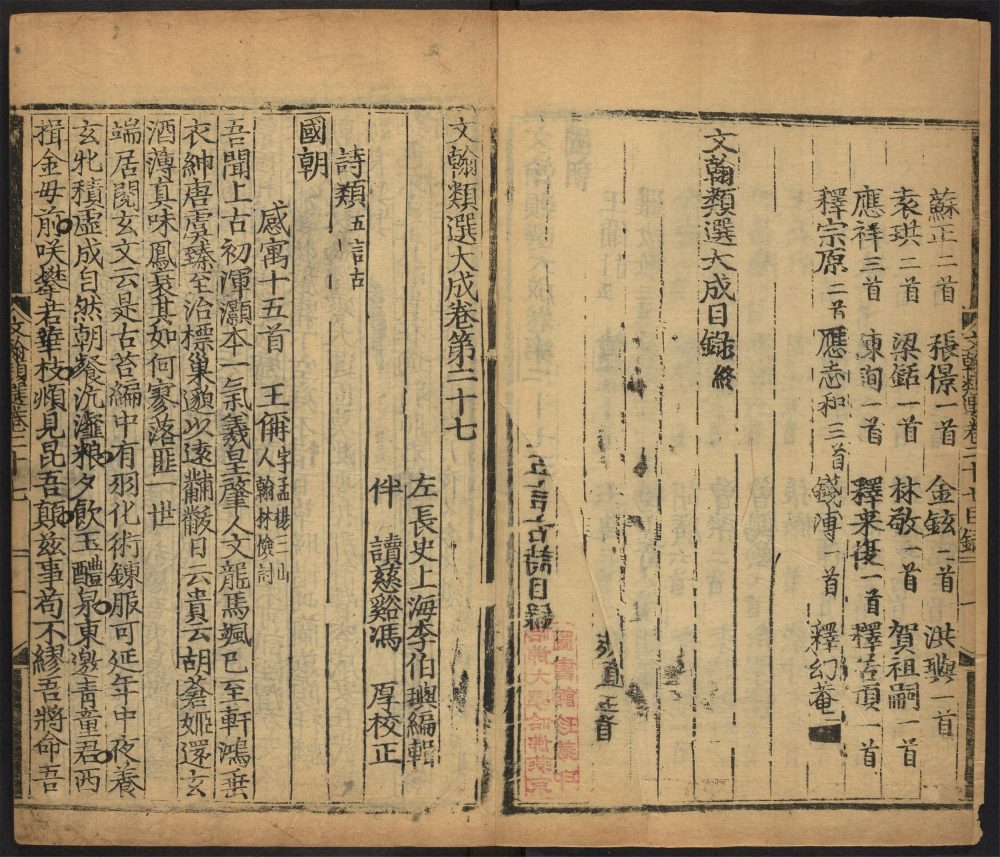 蘇正二首 張璟一首 金鉉二首 洪璵一首
袁珙二首 梁銛一首 林敬一首 賀祖嗣一首
應祥三首 陳洵一首 釋来復一首 釋善項一首
釋宗原二首 應志和三首 錢博一首 釋幻菴二
文翰類選大成目録終
五言古詩目録
文翰類選大成卷第二十七
左長史上海李伯璵編輯
伴讀慈谿馮厚校正
詩類五言古
國朝
感寓十五首 王偁字孟楊三山人翰林檢討
吾聞上古初渾灝本一氣羲皇肇人文龍馬颯已至軒鴻垂
衣紳唐虞臻至治標巢邈以遠黼黻日云貴云胡蒼姬還玄
酒薄真味鳳兮其如何寥落匪一世
端居閱玄文云是古苔編中有羽化術鍊服可延年中夜養
玄牝積虛成自然朝飱沆瀣粮夕飲玉醴泉東邀青童君西
揖金母前咲攀若華枝頫見昆吾顛茲事苟不繆吾將命吾